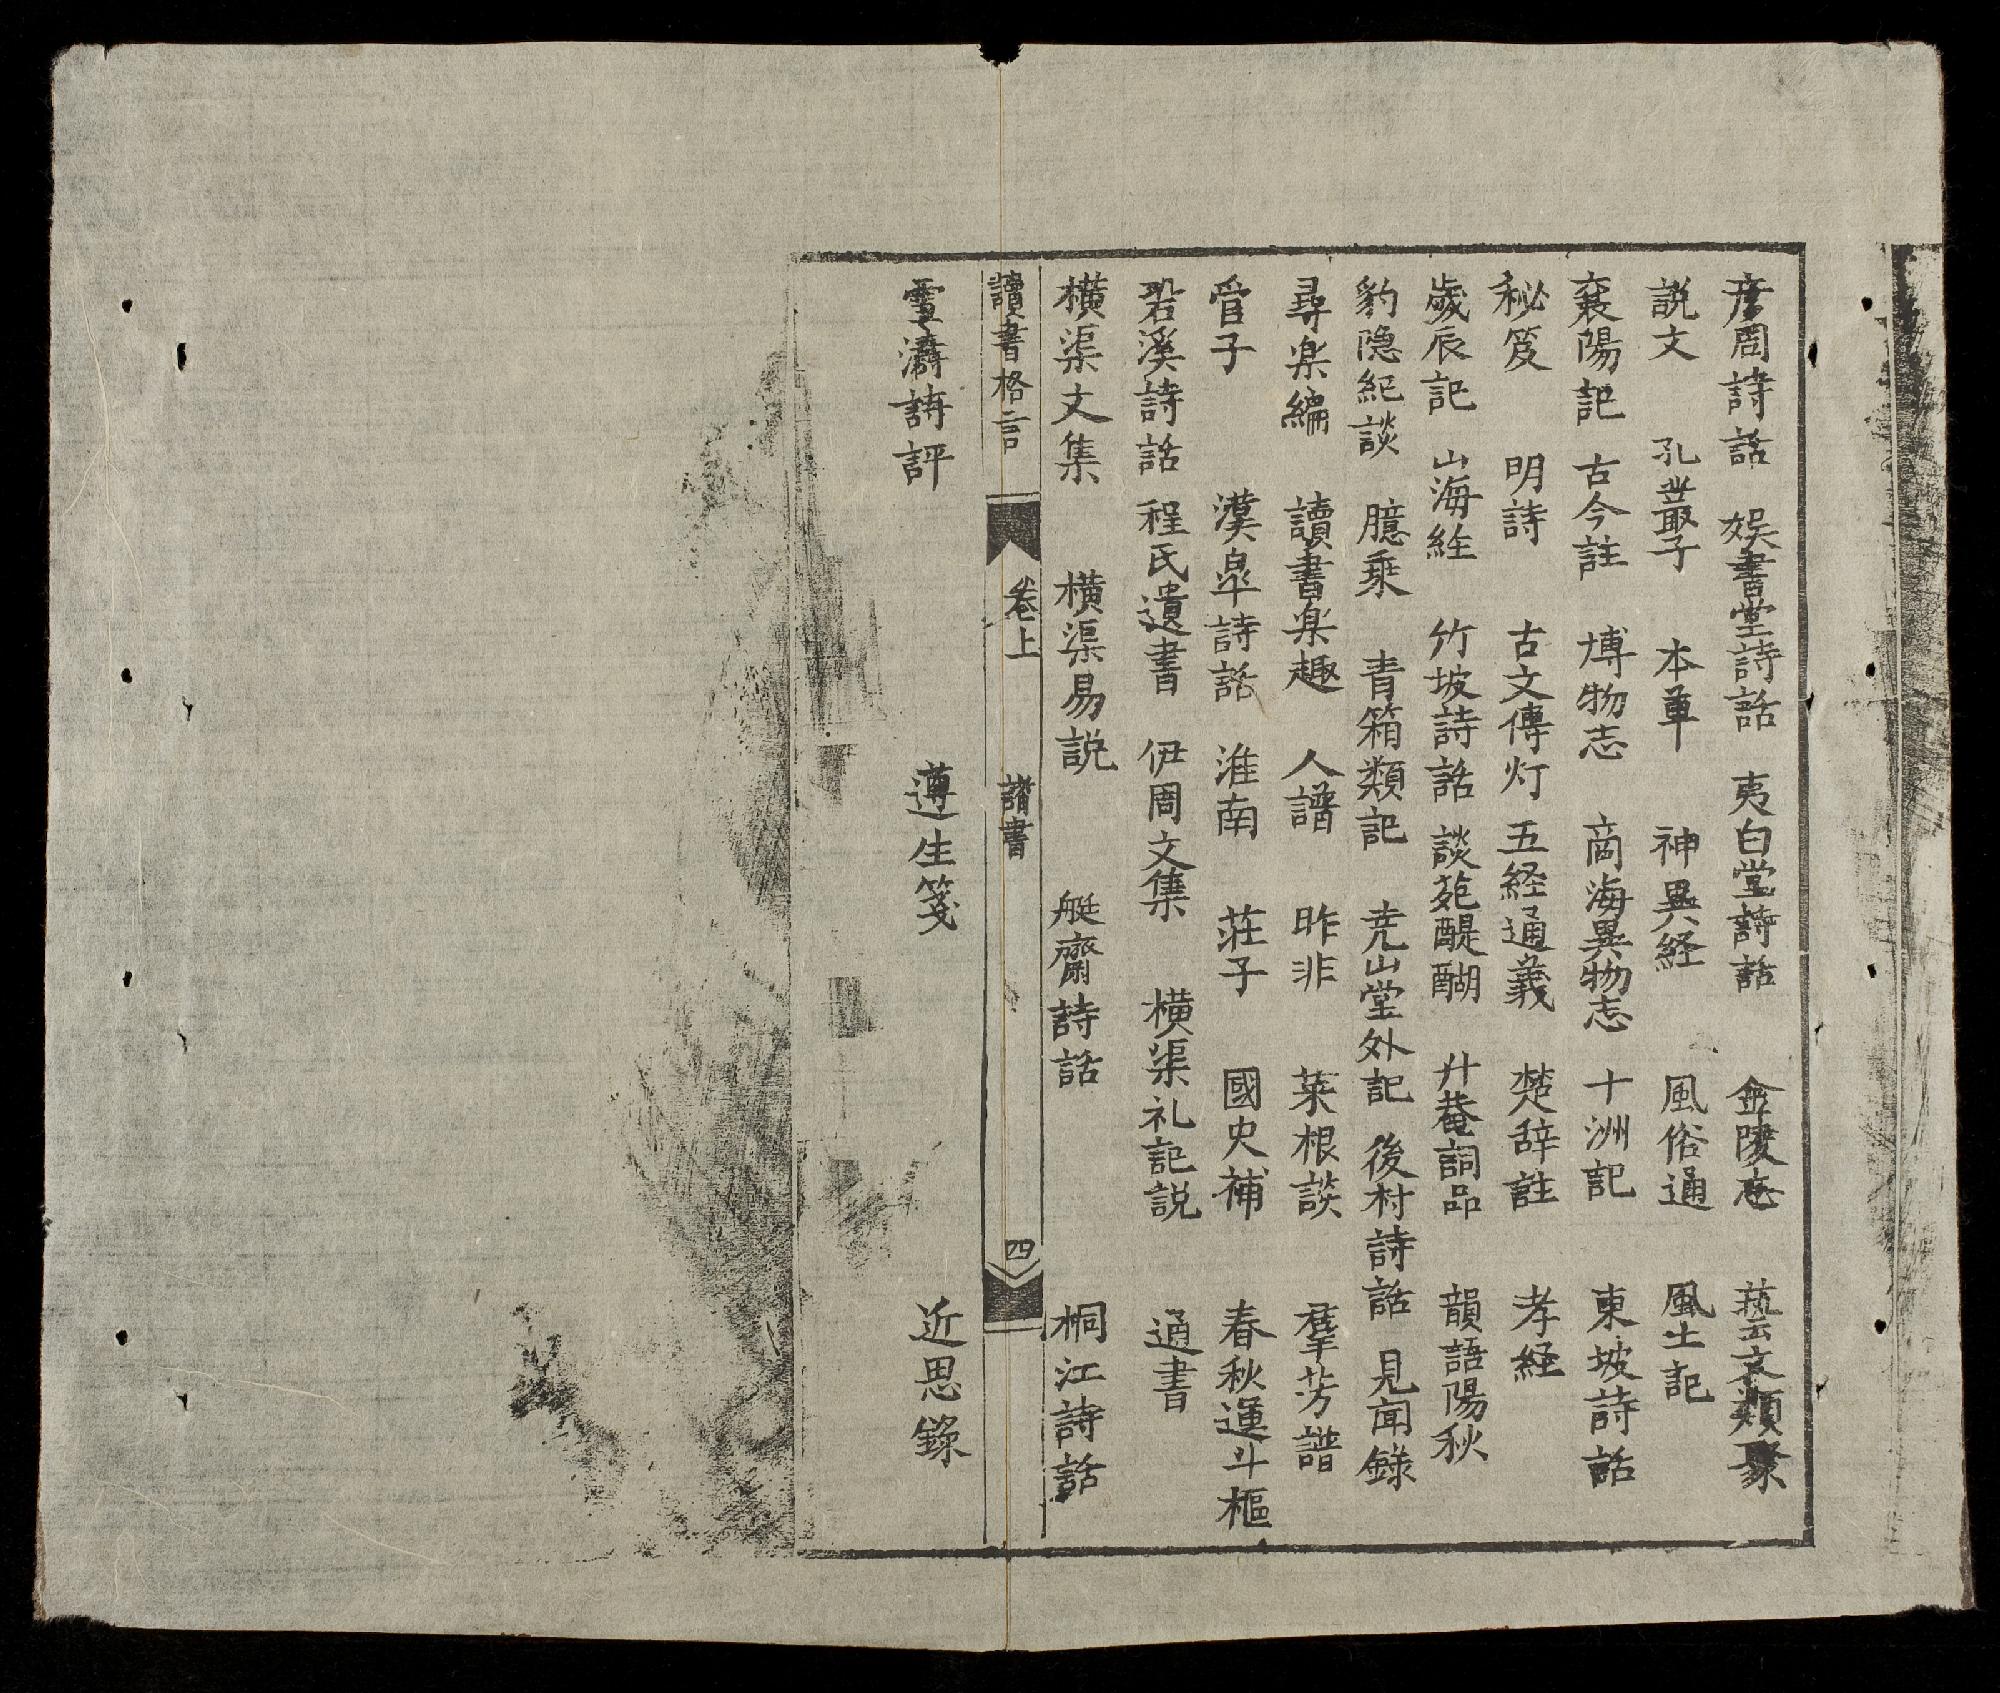 彦周詩話 娯書堂詩話 夷白堂詩話 金陵志 藝文類聚
説文 孔叢子 本草 神異経 風俗通 風土記
襄陽記 古今註 博物志 啇海異物志 十洲記 東坡詩話
秘笈 明詩 古文傳灯 五経通義 楚辞註 孝経
歲辰記 山海経 竹坡詩話 談苑醍醐 廾菴詞品 韻語陽秋
豹隐紀談 臆乗 青箱類記 尭山堂外記 後村詩話 見聞錄
尋楽編 讀書楽趣 人譜 昨非 菜根談 羣芳譜
管子 漢皐詩話 淮南 莊子 國史補 春秋運斗樞
碧溪詩話 程氏遺書 伊周文集 横渠礼記説 通書
横渠文集 横渠易説 艇齋詩話 桐江詩話
讀書格言 卷上 諸書 四
雪濤詩評 遵生箋 近思錄